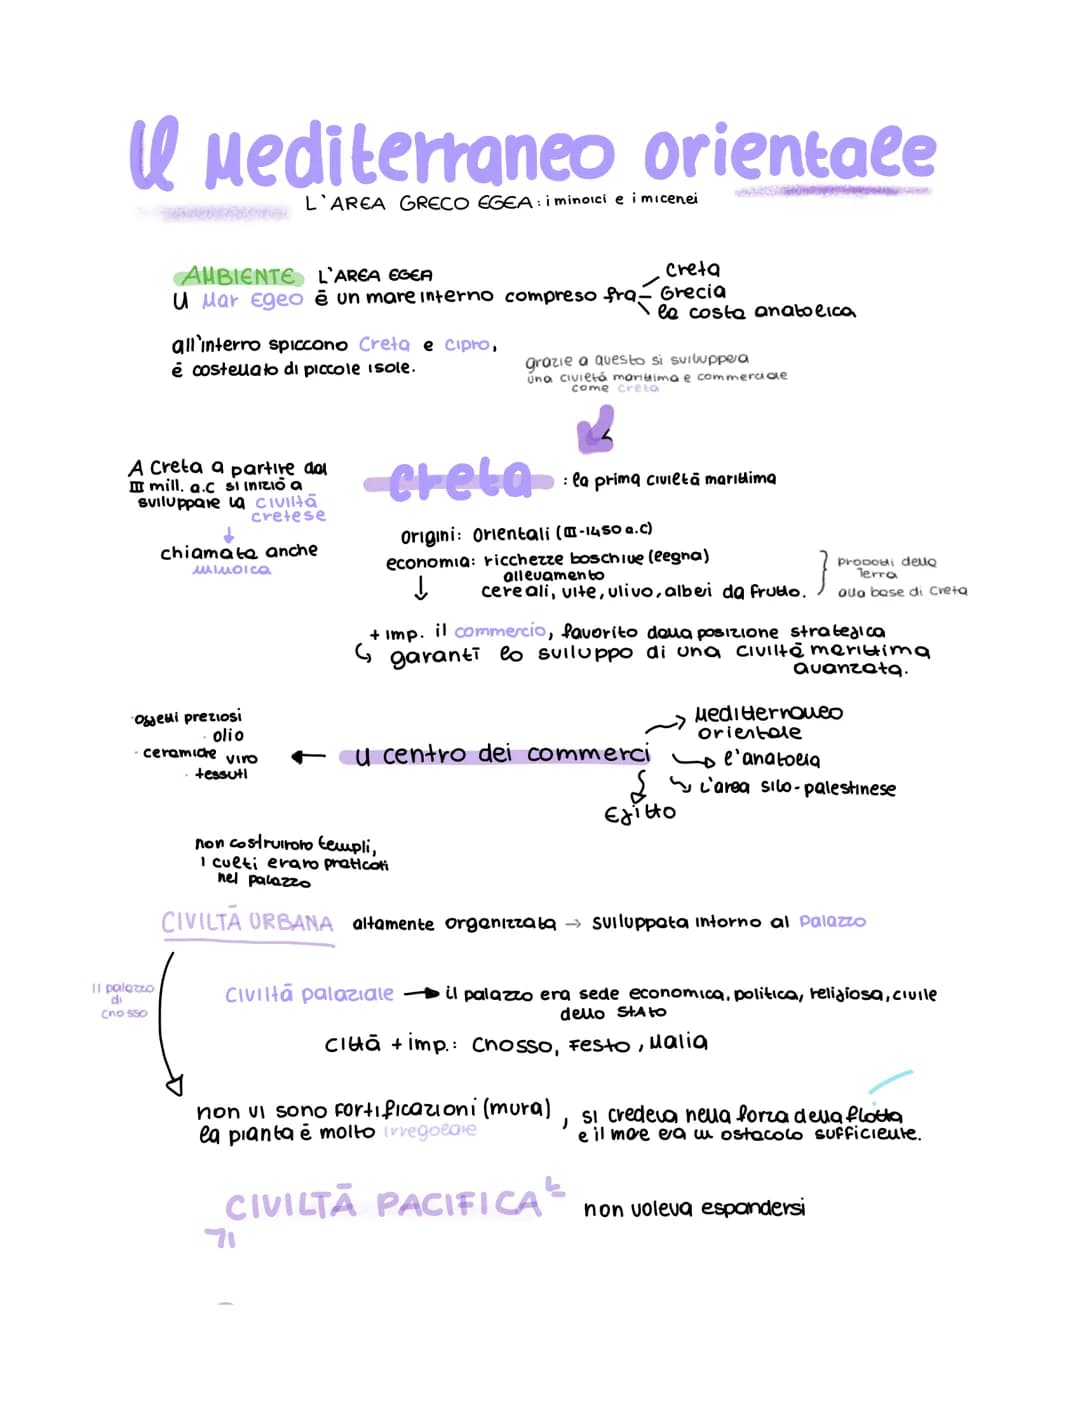 Il Mediterraneo orientale
L'AREA GRECO EGEA: i minoici e i micenei
AMBIENTE L'AREA EGEA
Il Mar Egeo è un mare interno compreso fra
Creta
Grecia
la costa anatolica
all'interno spiccano Creta e Cipro,
è costellato di piccole isole.
grazie a questo si sviluppera
una civiltà marittima e commerciale
come creta
A Creta a partire dal
III mill. a.C si iniziò a
sviluppare la civiltà
cretese
chiamata anche
minoica
creta : la prima civiltà marittima
origini: Orientali (III-1450 a.C)
economia: ricchezze boschive (legna)
allevamento
cereali, vite, ulivo, alberi da frutto.
prodotti della
Terra
alla base di Creta
+ imp. il commercio, favorito dalla posizione strategica
garantì lo sviluppo di una civiltà marittima
avanzata.
· oggetti preziosi
· olio
· ceramiche vino
· tessuti
il centro dei commerci
Mediterraneo
orientale
l'anatolia
L'area siro-palestinese
Egitto
non costruirono templi,
i culti erano praticati
nel palazzo
CIVILTÀ URBANA altamente organizzata → sviluppata intorno al Palazzo
Il palazzo
di
cnosso
Civiltà palaziale → il palazzo era sede economica, politica, religiosa, civile
dello Stato
Città + imp.: Cnosso, Festo, Malia
non vi sono fortificazioni (mura) , si credeva nella forza della flotta
la pianta è molto irregolare e il mare era un ostacolo sufficiente.
CIVILTÀ PACIFICA non voleva espandersi